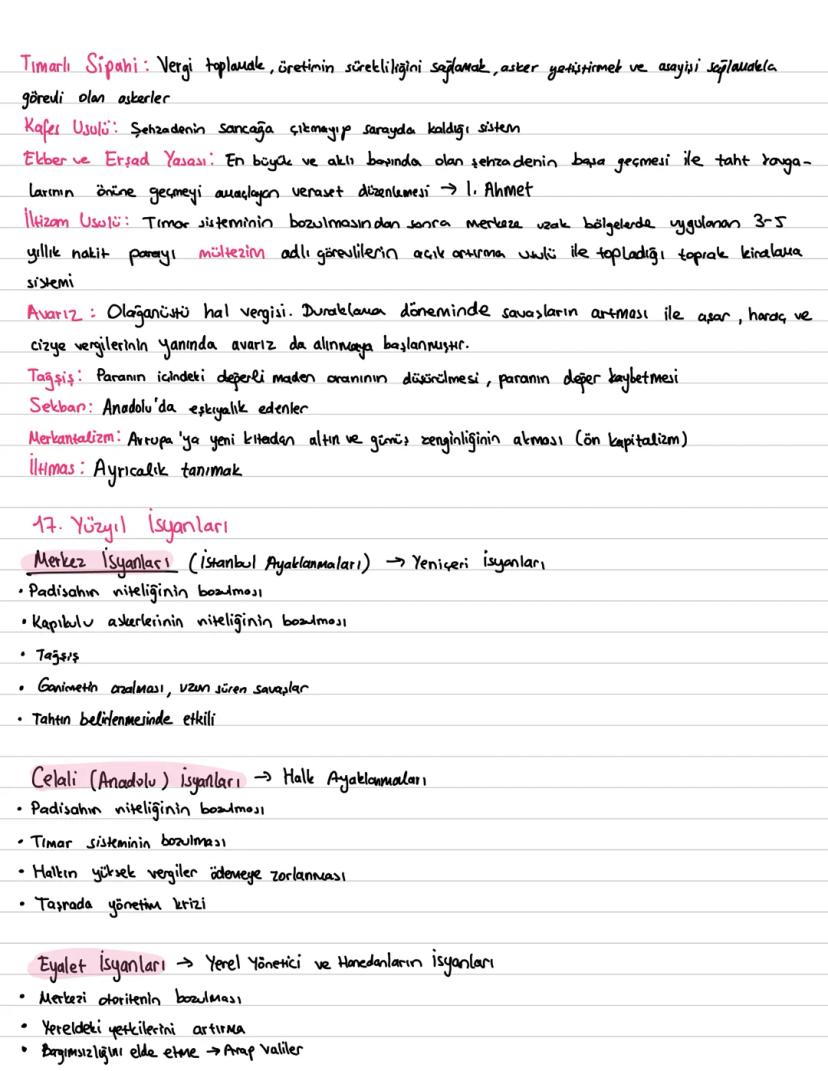 Tımarlı Sipahi: Vergi toplamak, üretimin sürekliliğini sağlamak, asker yetiştirmek ve asayişi sağlamakla
görevli olan askerler
Kafes Usulü: Şehzadenin sancağa çıkmayıp sarayda kaldığı sistem
Ekber ve Erşad Yasası: En büyük ve aklı başında olan şehzadenin başa geçmesi ile taht kavga-
larının önüne geçmeyi amaçlayan veraset düzenlemesi → I. Ahmet
İltizam Usulü: Tımar sisteminin bozulmasından sonra merkeze uzak bölgelerde uygulanan 3-5
yıllık nakit parayı mültezim adlı görevlilerin açık artırma usulü ile topladığı toprak kiralama
sistemi
Avarız: Olağanüstü hal vergisi. Duraklama döneminde savaşların artması ile aşar, haraç ve
cizye vergilerinin yanında avarız da alınmaya başlanmıştır.
Tağşiş: Paranın içindeki değerli maden oranının düşürülmesi, paranın değer kaybetmesi
Sekban: Anadolu'da eşkıyalık edenler
Merkantalizm: Avrupa'ya yeni kıtadan altın ve gümüş zenginliğinin akması (ön kapitalizm)
İltimas: Ayrıcalık tanımak
17. Yüzyıl İsyanları
Merkez İsyanları (İstanbul Ayaklanmaları) → Yeniçeri İsyanları
• Padişahın niteliğinin bozulması
• Kapıkulu askerlerinin niteliğinin bozulması
• Tağşiş
• Ganimetin azalması, uzun süren savaşlar
• Tahtın belirlenmesinde etkili
Celali (Anadolu) İsyanları → Halk Ayaklanmaları
• Padişahın niteliğinin bozulması
• Tımar sisteminin bozulması
• Halkın yüksek vergiler ödemeye zorlanması
• Taşrada yönetim krizi
Eyalet İsyanları → Yerel Yönetici ve Hanedanların İsyanları
• Merkezi otoritenin bozulması
• Yereldeki yetkilerini artırma
• Bağımsızlığını elde etme → Arap Valiler